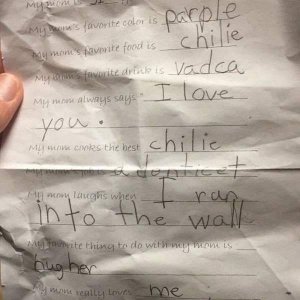 My mom is 32
My mom's favorite color is parple
My mom's favorite food is chilie
My mom's favorite drink is Vadca
My mom always says " I love
you.
My mom cooks the best chilie
My mom's job is a donticet
My mom laughs when I run
into the wall
My favorite thing to do with my mom is
hug her
My mom really loves me